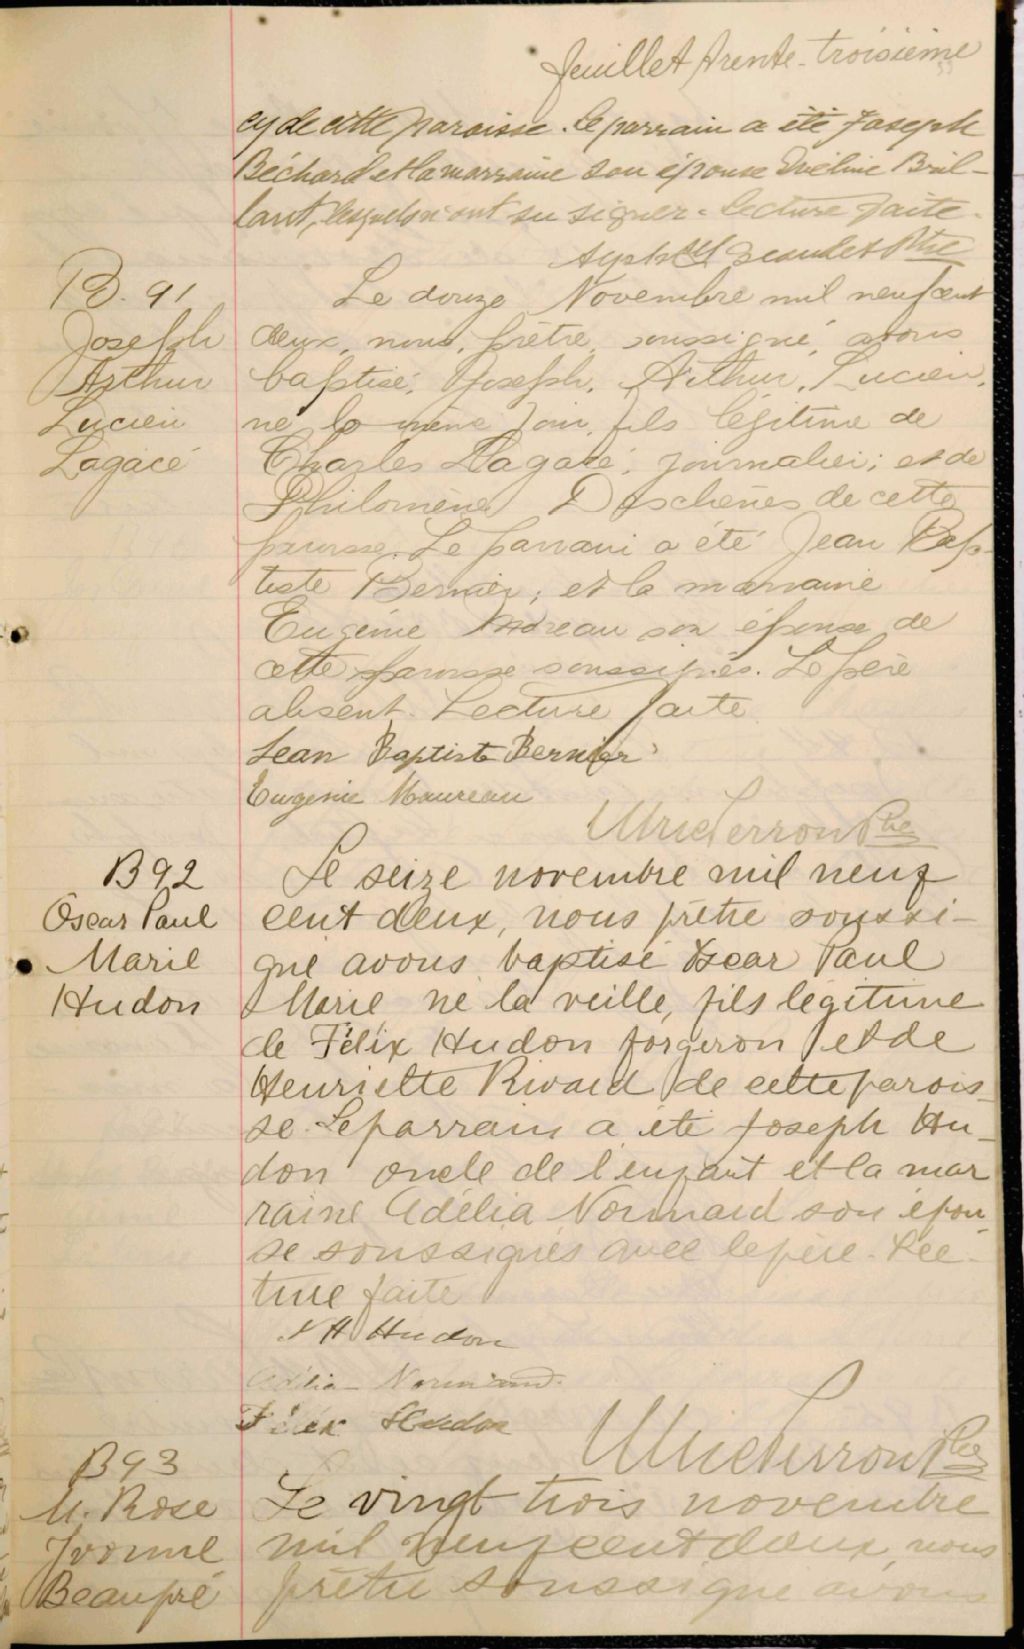 feuillet trente-troisième
cy de cette paroisse. Le parrain a été Joseph
Béchard et la marraine son épouse Evéline Bril-
lant, lesquels n'ont su signer. Lecture faite.
Ptre
B. 91
Joseph
Arthur
Lucien
Lagacé
Le douze Novembre mil neuf cent
deux, nous, prêtre soussigné, avons
baptisé, Joseph, Arthur, Lucien,
né le même jour, fils légitime de
Charles Lagacé, journalier; et de
Philomène Deschênes de cette
paroisse. Le parrain a été Jean Bap-
tiste Bernier; et la marraine
Eugénie Moreau son épouse de
cette paroisse soussignés. Le père
absent. Lecture faite
Jean Baptiste Bernier
Eugenie Maureau
Ulric Perron Ptre
B 92
Oscar Paul
Marie
Hudon
Le seize novembre mil neuf
cent deux, nous prêtre soussi-
gné avons baptisé Oscar Paul
Marie né la veille, fils légitime
de Félix Hudon forgeron et de
Henriette Rivard de cette parois-
se. Le parrain a été Joseph Hu-
don oncle de l'enfant et la mar
raine Adélia Normand son épou-
se soussignés avec le père. Lec-
ture faite
Hudon
Adélia Normand
Félix Hudon
Ulric Perron Ptre
B 93
M. Rose
Yvonne
Beaupré
Le vingt trois novembre
mil neuf cent deux, nous
prêtre soussigné avons